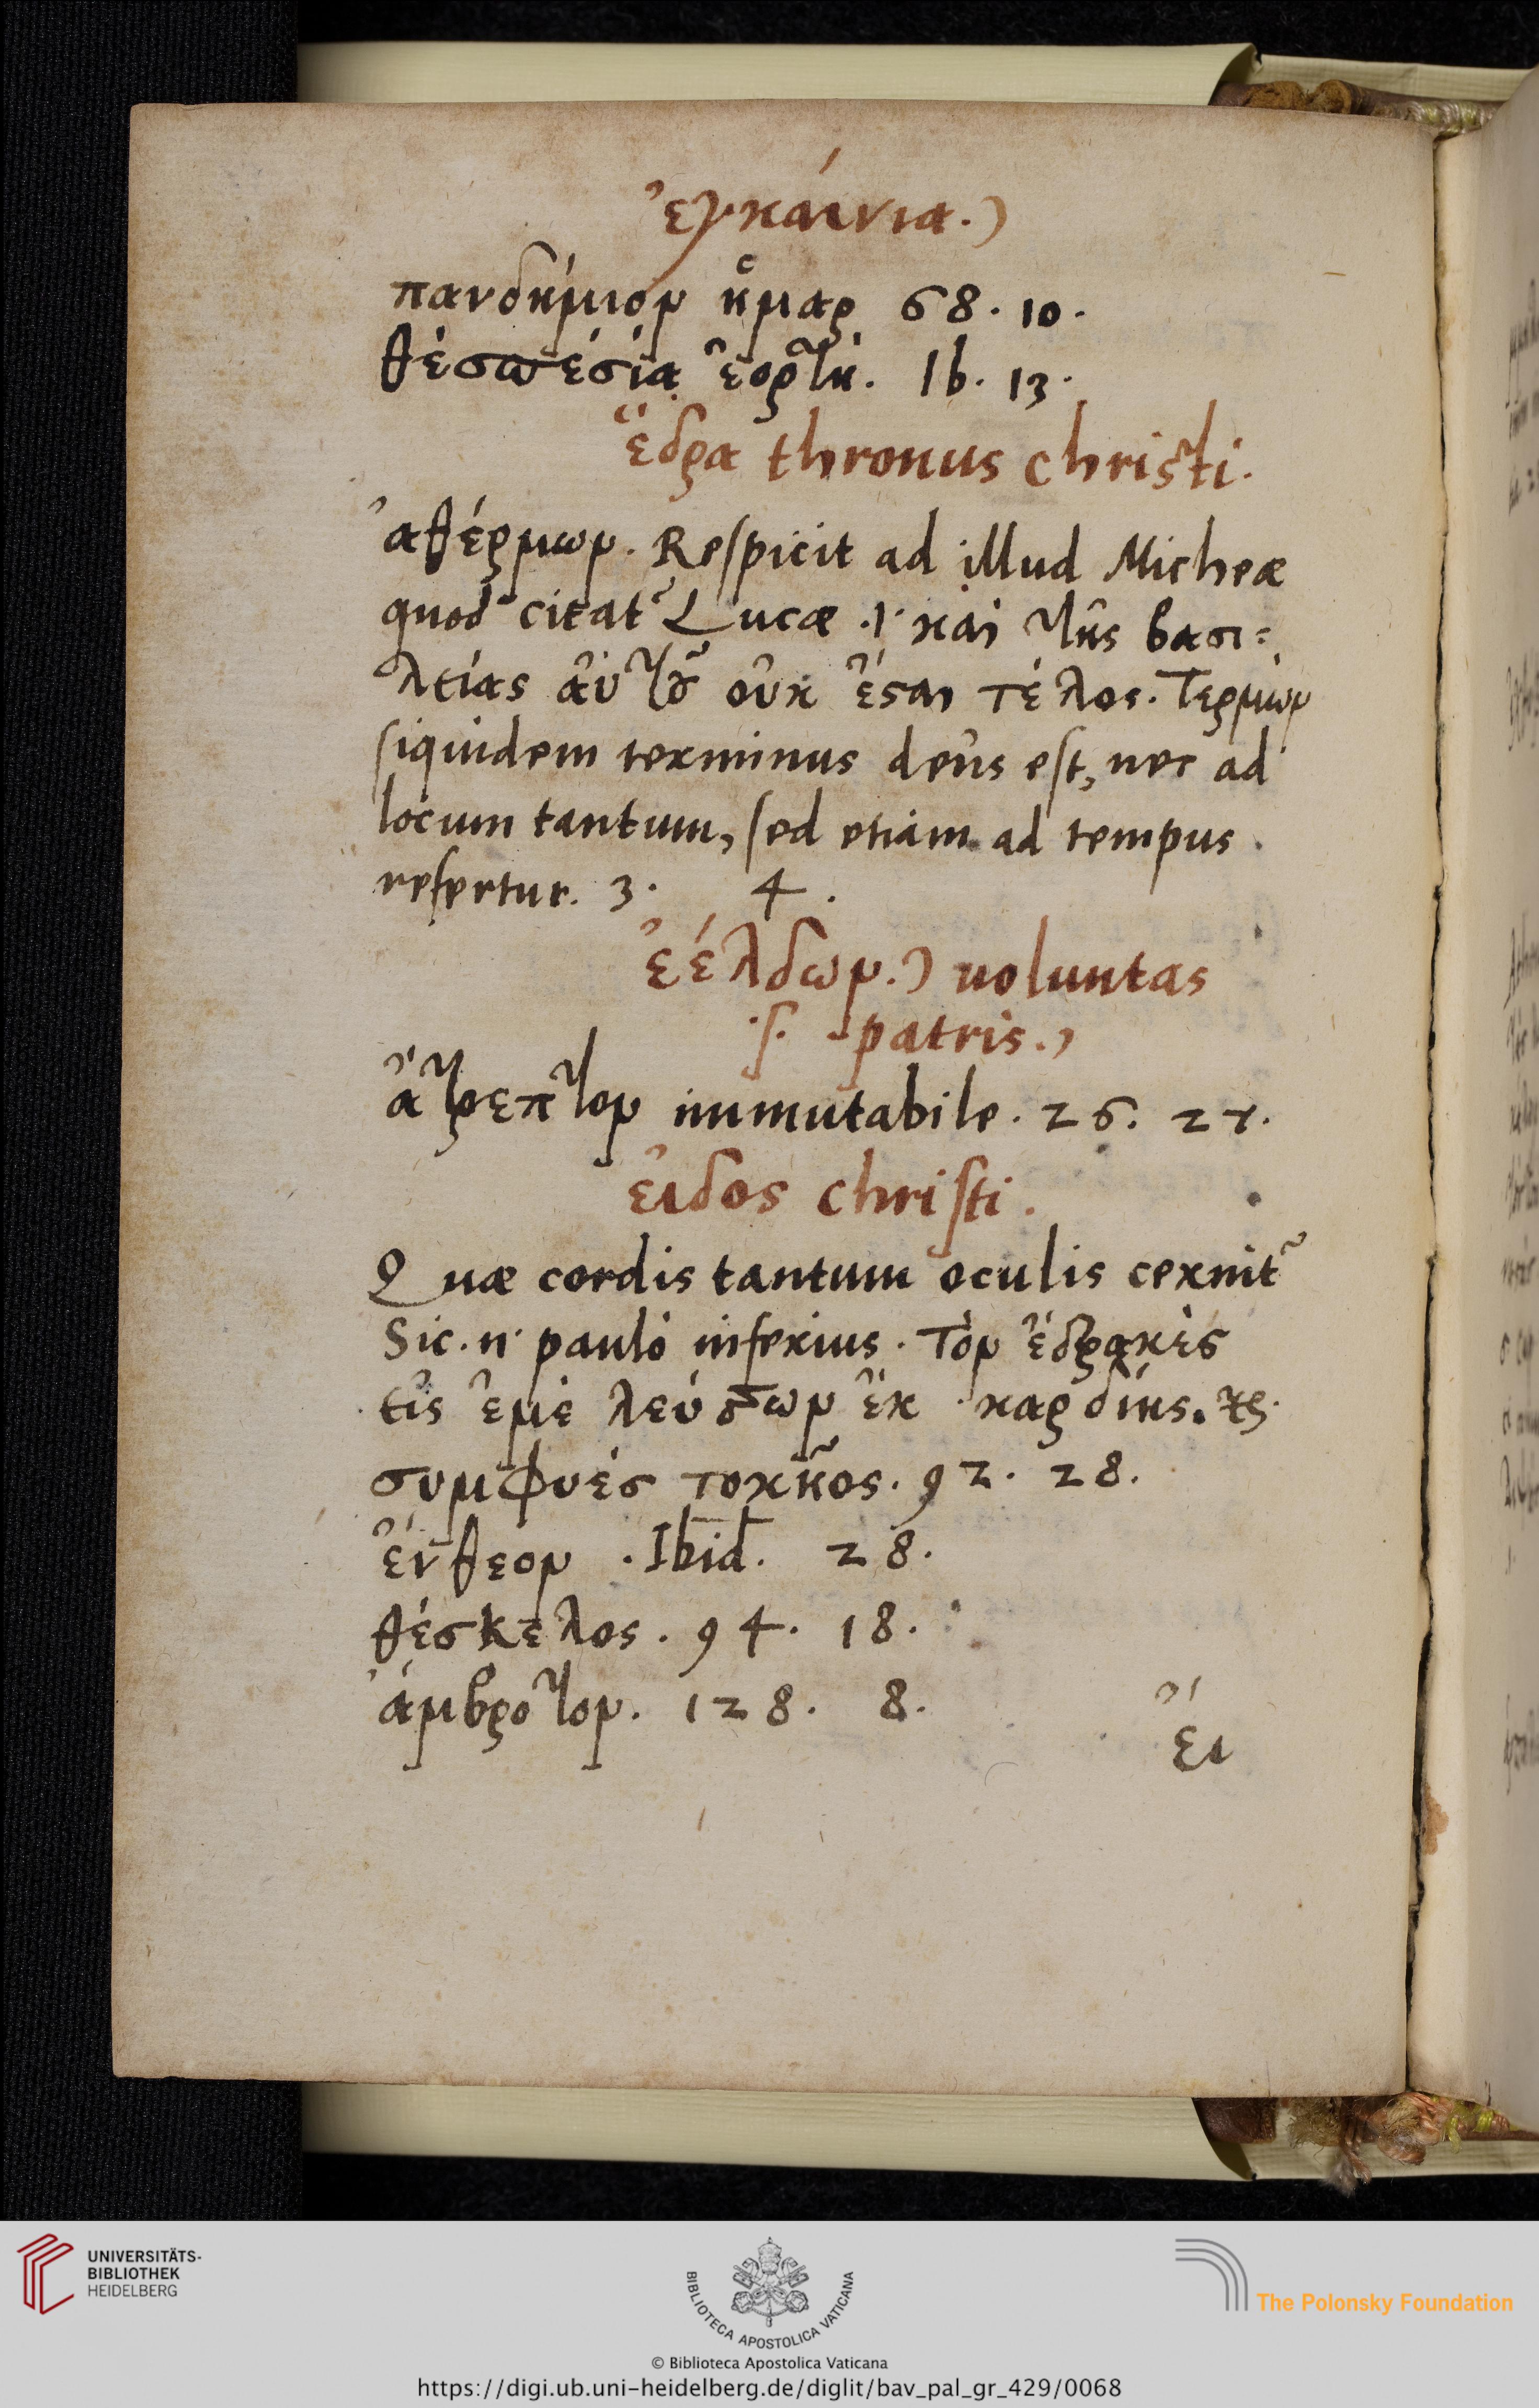 ἐγκαίνια.)
πανδήμιον ἦμαρ 68. 10.
θέσπεσία ἑορτὴ. Ib. 13.
ἕδρα thronus christi.
ἀθέρμων. Respicit ad illud Micheæ
quod citat᷑ Lucæ .1. καὶ τῆς βασι=
λείας ἀυτοῦ οὐκ ἔσαι τέλος. Τερμὼν
siquidem terminus deus est, nec ad
locum tantum, sed etiam ad tempus
refertur. 3. 4.
ἐέλδωρ.) uoluntas
.s. patris.)
ἄτρεπτον immutabile. 26. 27.
εἶδος christi.
Quæ cordis tantum oculis cernit᷑
Sic .n. paulò inferius. Τὸν ἔδρακὲς
τὶς ἐμὲ λεύσσων ἐκ καρδίης.
συμφυὲς τοκῆος. 92. 28.
ἔνθεον . Ibid. 28.
θέσκελος. 94. 18.
ἄμβροτον. 128. 8.
ἔι
UNIVERSITÄTS-
BIBLIOTHEK
HEIDELBERG
BIBLIOTECA APOSTOLICA VATICANA
The Polonsky Foundation
© Biblioteca Apostolica Vaticana
https://digi.ub.uni-heidelberg.de/diglit/bav_pal_gr_429/0068